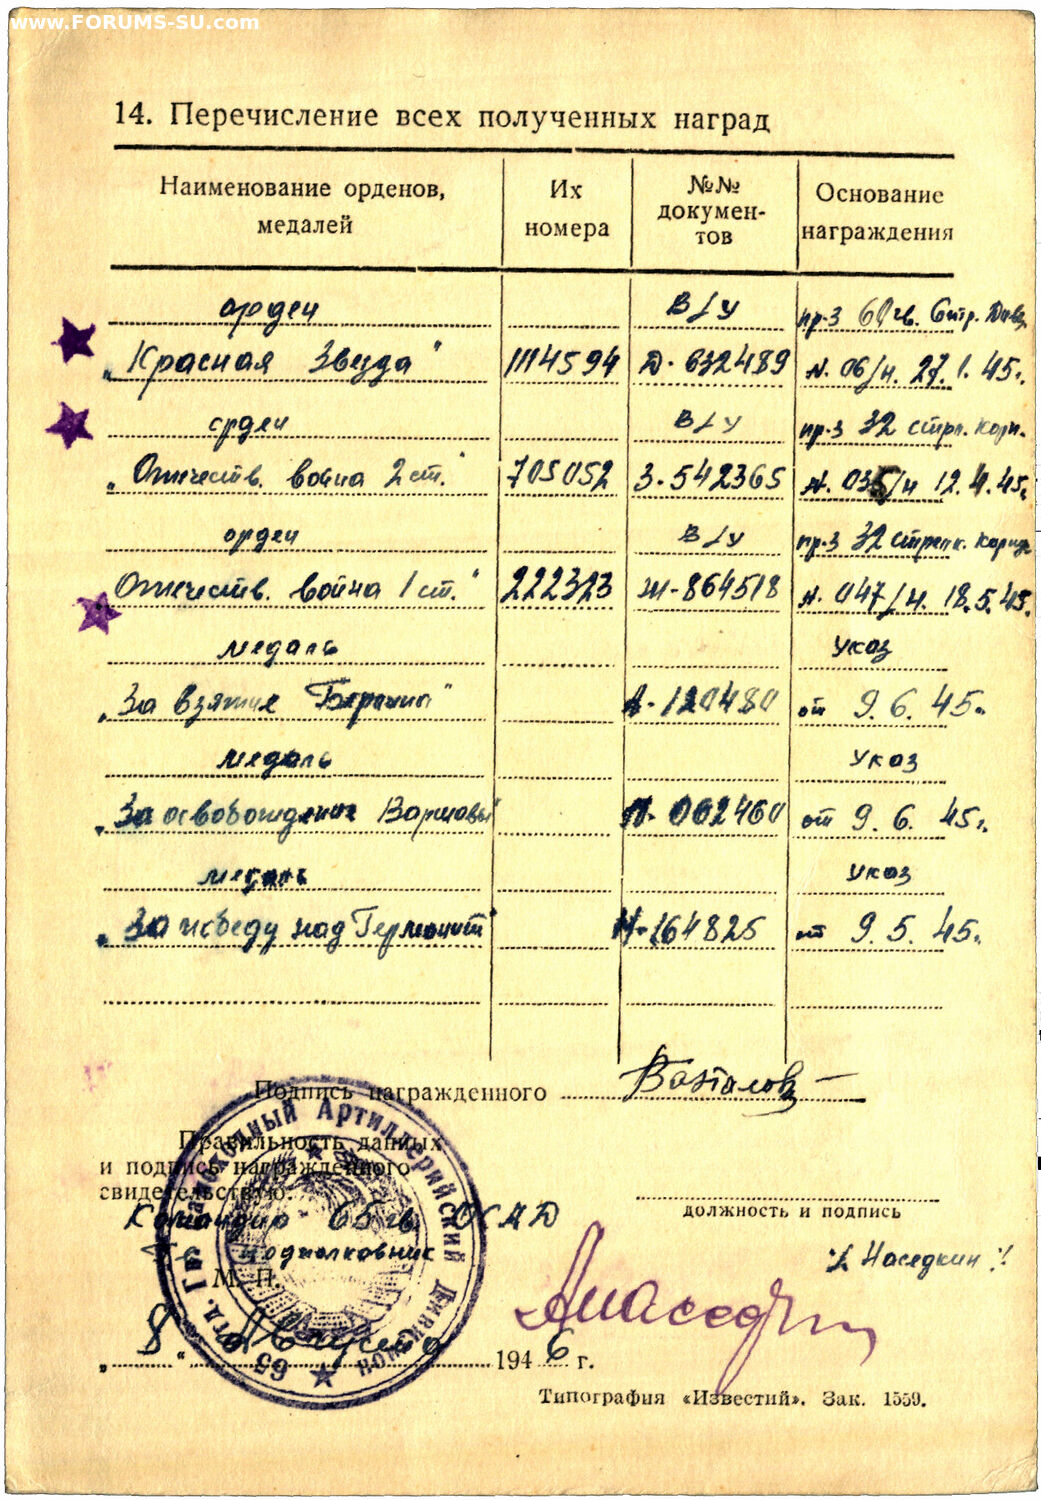 www.FORUMS-SU.com
14. Перечисление всех полученных наград
Наименование орденов, медалей
Их номера
№№ докумен-
тов
Основание награждения
орден В/У пр-з 60 гв. Стр. Див.
„Красная Звезда" 1114594 Д-632489 N. 06/н. 27.1.45г.
орден В/У пр-з 32 стрл. корп.
„Отечеств. война 2 ст." 705052 З-542365 N. 035/н 12.4.45г.
орден В/У пр-з 32 стрелк. корпус
Отечеств. война 1 ст." 222323 Ж-864518 N. 047/н. 18.5.45.
медаль Указ
„За взятие Берлина" А-120480 от 9.6.45г.
медаль Указ
„За освобождение Варшавы" А-062460 от 9.6.45г.
медаль Указ
„За победу над Германией" 164825 от 9.5.45г.
Подпись награжденного
Правильность данных
и подпись награжденного
свидетельствую:
Командир 65 гв. ОСАД
подполковник
должность и подпись
Наседкин
М. П.
„8" Августа 1946 г.
65 отд. Гв. Самоходный Артиллерийский Дивизион
Типография «Известий». Зак. 1559.